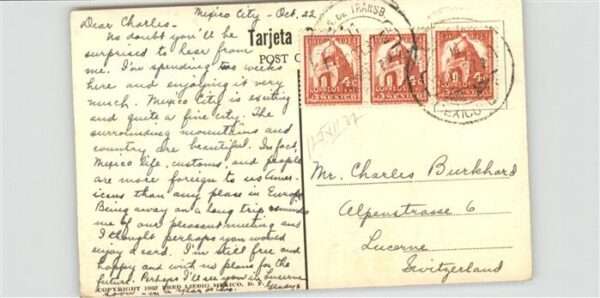 Mexico City - Oct. 22
Dear Charles -
No doubt you'll be
surprised to hear from
me. I'm spending two weeks
here and enjoying it very
much. Mexico City is exciting
and quite a fine city. The
surrounding mountains and
country are beautiful. In fact,
Mexico life, customs, and people
are more foreign to us Amer-
icans than any place in Europe.
Being away on a long trip reminds
me of our pleasant meeting and
I thought perhaps you would
enjoy a card. I'm still free and
happy and with no plans for the
future. Perhaps I'll see you in Lucerne
soon - in a year or so.
Gladys
COPYRIGHT FRED MEXICO, D. F.
Tarjeta
POST
DE TRANSB.
4c
CORREOS
MEXICO
4c
CORREOS
MEXICO
4c
MEXICO
Mr. Charles Burkhard
Alpenstrasse 6
Lucerne
Switzerland